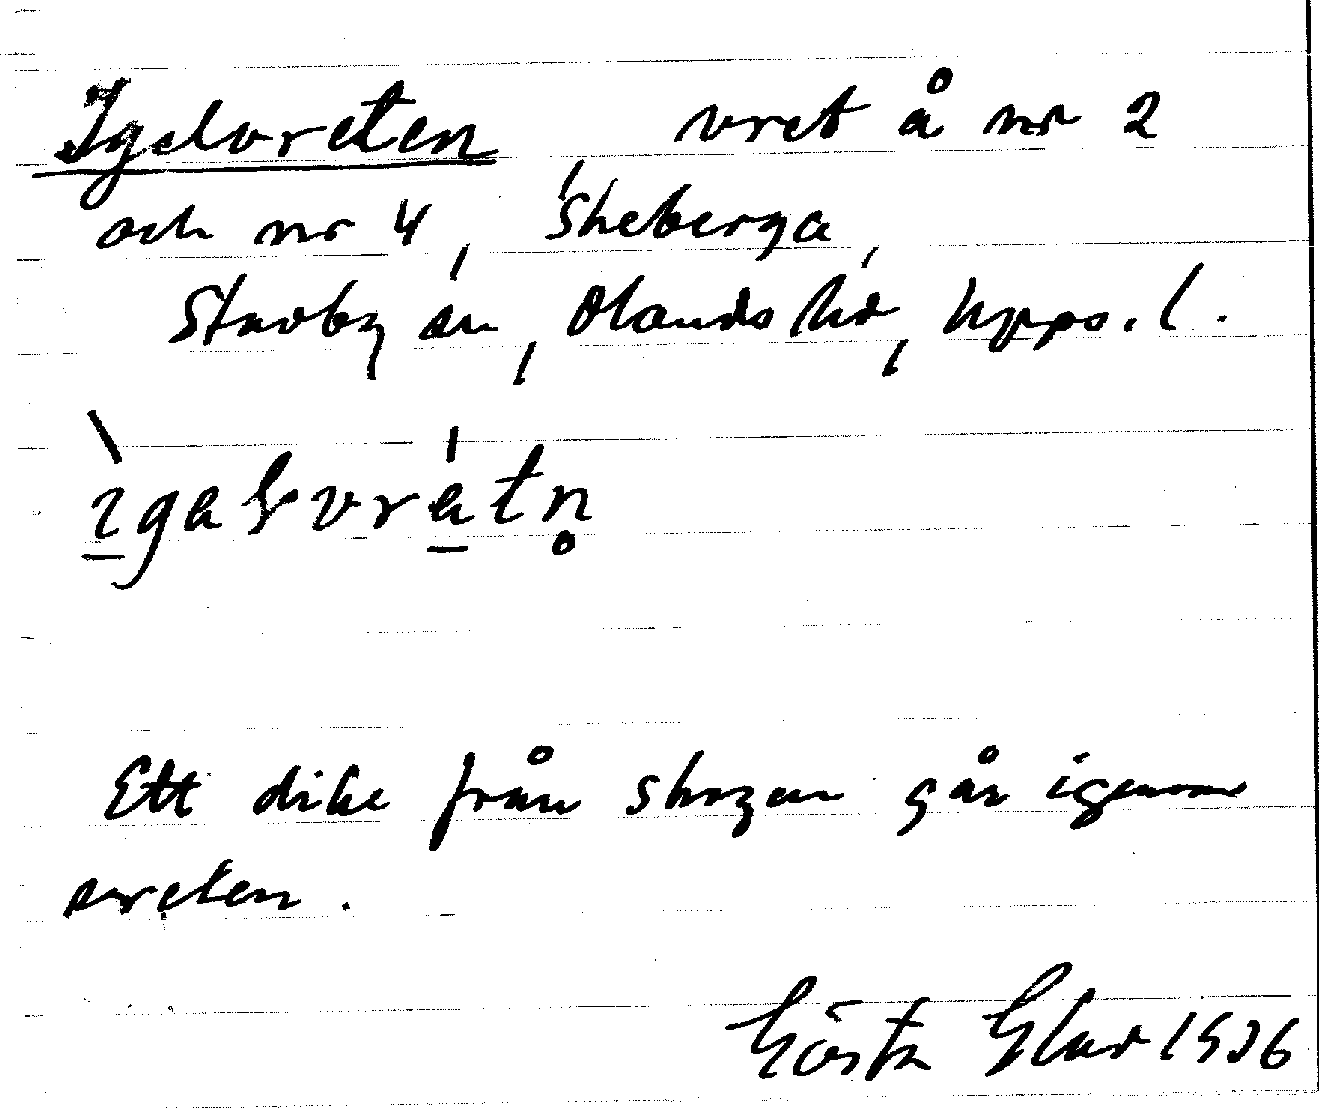 Igelvreten vret å nr 2
och nr 4, Skeberga,
Stavby sn, Olands hd, Upps. l.
Ett dike från skogen går igenom
vreten.
Gösta Elar 1936